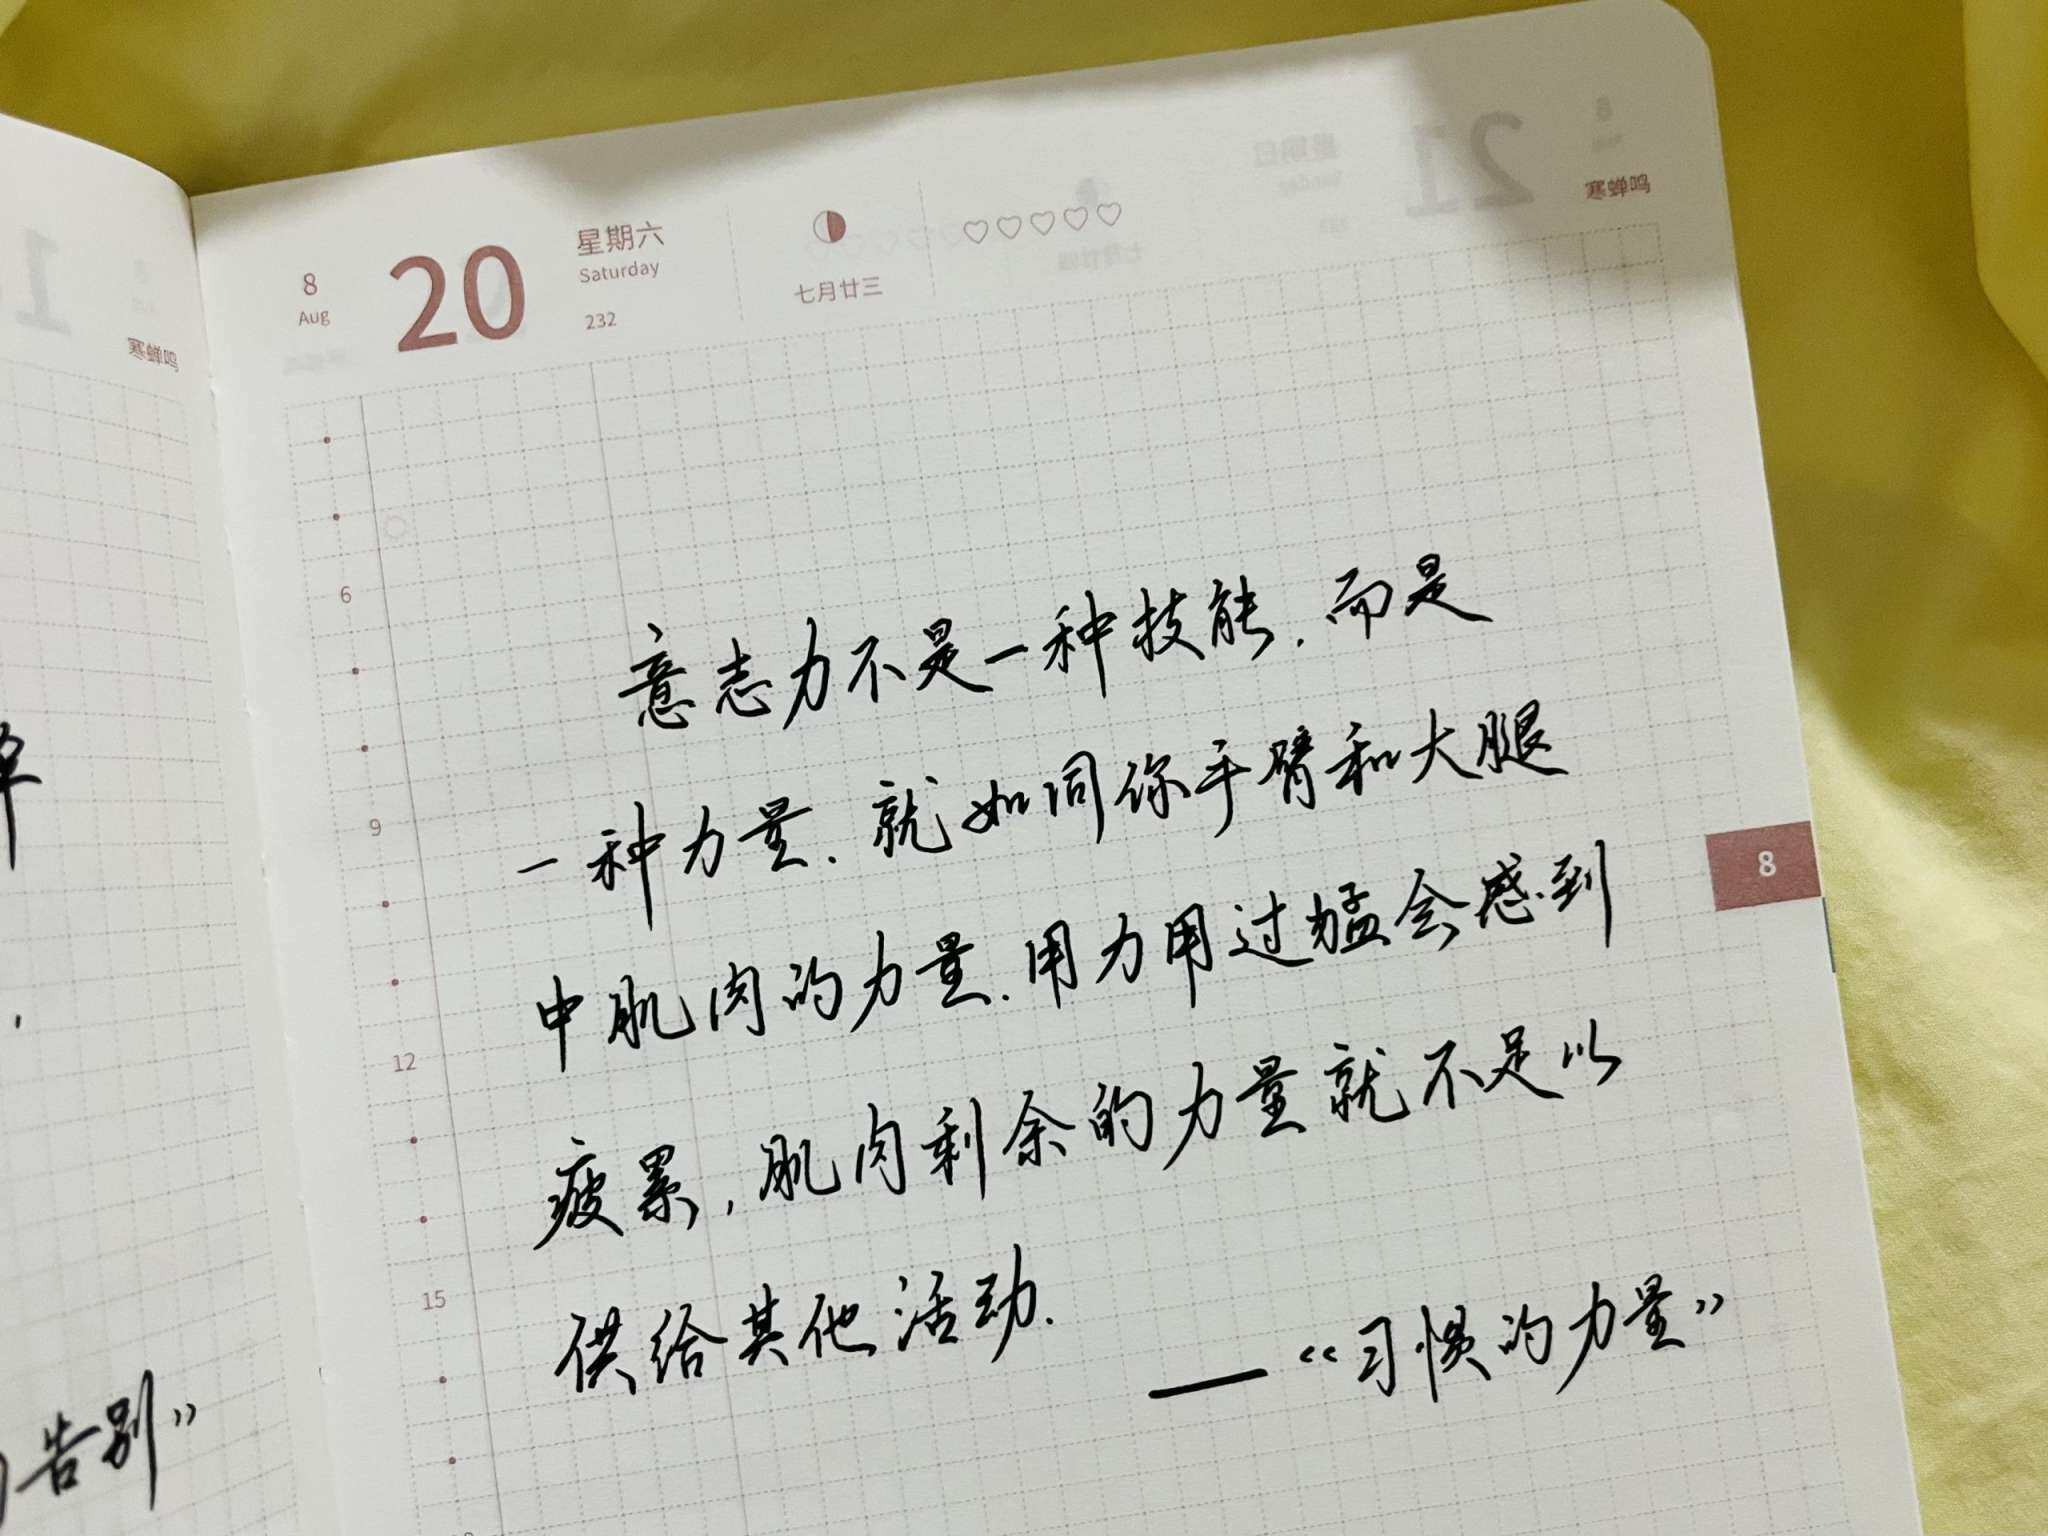 8
Aug
20
星期六
Saturday
232
七月廿三
寒蝉鸣
寒蝉鸣
6
9
12
15
8
意志力不是一种技能.而是
一种力量.就如同你手臂和大腿
中肌肉的力量.用力用过猛会感到
疲累,肌肉剩余的力量就不足以
供给其他活动.
——“习惯的力量”
告别”